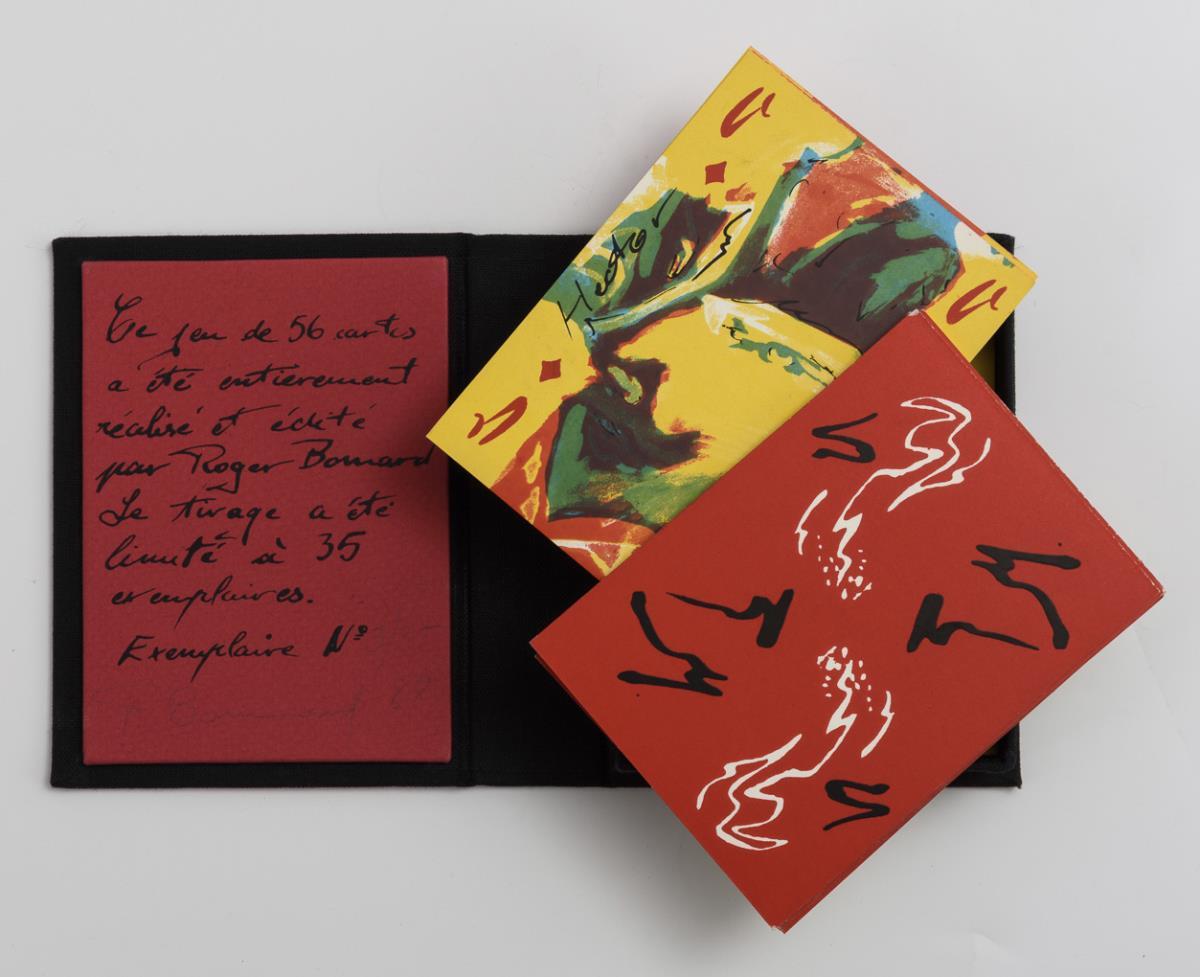 Ce jeu de 56 cartes
a été entièrement
réalisé et édité
par Roger Bonnard
Le tirage a été
limité à 35
exemplaires.
Exemplaire Nº
Hector